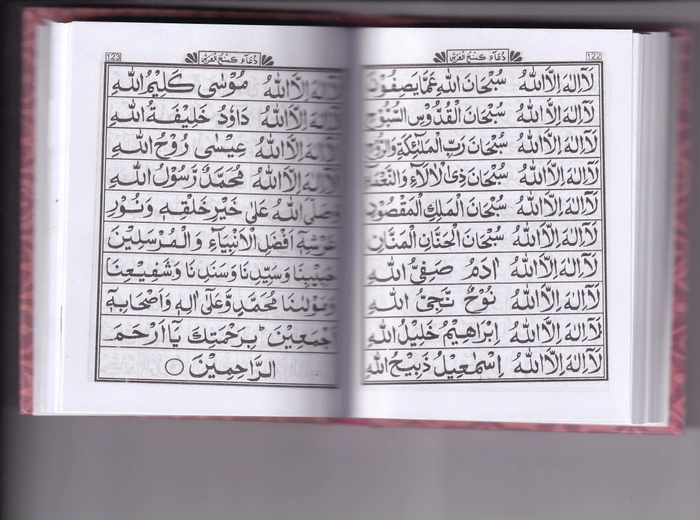 122
دُعَاء گنجُ العَرش
لَآ اِلٰهَ اِلَّا اللّٰهُ سُبْحَانَ اللّٰهِ عَمَّا يَصِفُوْنَ
لَآ اِلٰهَ اِلَّا اللّٰهُ سُبْحَانَ الْقُدُّوْسِ السُّبُّوْحِ
لَآ اِلٰهَ اِلَّا اللّٰهُ سُبْحَانَ رَبِّ الْمَلٰٓئِكَةِ وَالرُّوْحِ
لَآ اِلٰهَ اِلَّا اللّٰهُ سُبْحَانَ ذِى الْاٰلَاءِ وَالنَّعْمَآءِ
لَآ اِلٰهَ اِلَّا اللّٰهُ سُبْحَانَ الْمَلِكِ الْمَقْصُوْدِ
لَآ اِلٰهَ اِلَّا اللّٰهُ سُبْحَانَ الْحَنَّانِ الْمَنَّانِ
لَآ اِلٰهَ اِلَّا اللّٰهُ اٰدَمُ صَفِىُّ اللّٰهِ
لَآ اِلٰهَ اِلَّا اللّٰهُ نُوْحٌ نَّجِىُّ اللّٰهِ
لَآ اِلٰهَ اِلَّا اللّٰهُ اِبْرَاهِيْمُ خَلِيْلُ اللّٰهِ
لَآ اِلٰهَ اِلَّا اللّٰهُ اِسْمٰعِيْلُ ذَبِيْحُ اللّٰهِ
123
دُعَاء گنجُ العَرش
لَآ اِلٰهَ اِلَّا اللّٰهُ مُوْسٰى كَلِيْمُ اللّٰهِ
لَآ اِلٰهَ اِلَّا اللّٰهُ دَاوٗدُ خَلِيْفَةُ اللّٰهِ
لَآ اِلٰهَ اِلَّا اللّٰهُ عِيْسٰى رُوْحُ اللّٰهِ
لَآ اِلٰهَ اِلَّا اللّٰهُ مُحَمَّدٌ رَّسُوْلُ اللّٰهِ
وَصَلَّى اللّٰهُ عَلٰى خَيْرِ خَلْقِهٖ وَنُوْرِ
عَرْشِهٖٓ اَفْضَلِ الْاَنْبِيَآءِ وَالْمُرْسَلِيْنَ
حَبِيْبِنَا وَسَيِّدِنَا وَسَنَدِنَا وَشَفِيْعِنَا
وَمَوْلٰىنَا مُحَمَّدٍ وَّعَلٰى اٰلِهٖ وَاَصْحَابِهٖٓ
اَجْمَعِيْنَ ؕ بِرَحْمَتِكَ يَآ اَرْحَمَ
الرَّاحِمِيْنَ